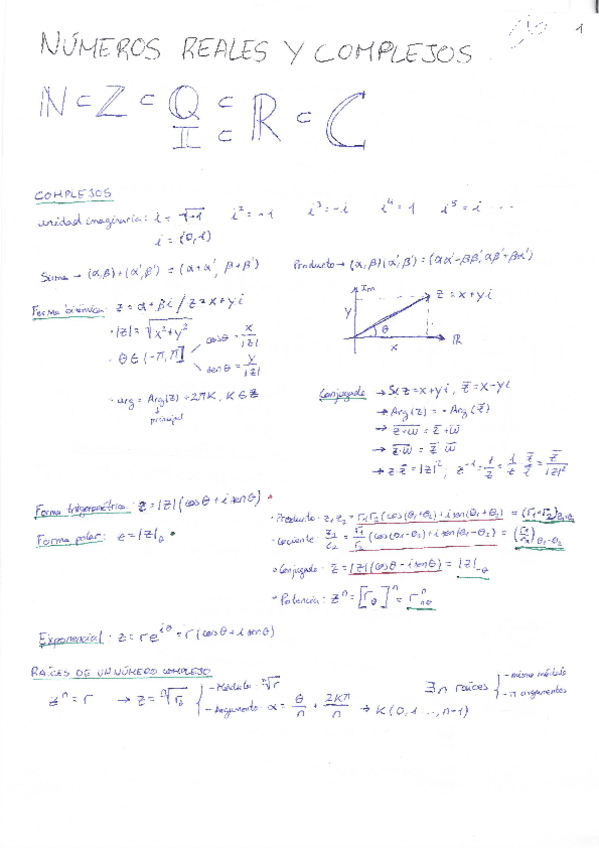 1
NÚMEROS REALES Y COMPLEJOS
ℕ ⊂ ℤ ⊂ ℚ ⊂ ℝ ⊂ ℂ
𝕀 ⊂
COMPLEJOS
unidad imaginaria: i = √-1 i² = -1 i³ = -i i⁴ = 1 i⁵ = i ...
i = (0,1)
Suma → (α,β)+(α',β') = (α+α', β+β')
Producto → (α,β)(α',β') = (αα'-ββ', αβ'+βα')
Forma binómica: z = α+βi / z = x+yi
· |z| = √x²+y²
· θ ∈ (-π,π] cosθ = x/|z|
senθ = y/|z|
· arg = Arg(z) + 2πK, K ∈ ℤ
↓
principal
Im
z = x+yi
y
θ
x
ℝ
Conjugado → Si z = x+yi, z̅ = x-yi
→ Arg(z) = - Arg(z̅)
→ z̅+̅w̅ = z̅ + w̅
→ z̅·̅w̅ = z̅ · w̅
→ z·z̅ = |z|², z⁻¹ = 1/z = 1/z z̅/z̅ = z̅/|z|²
Forma trigonométrica: z = |z|(cosθ + i senθ)
Forma polar: z = |z|θ
· Producto: z₁z₂ = r₁r₂(cos(θ₁+θ₂)+i sen(θ₁+θ₂)) = (r₁·r₂)θ₁+θ₂
· Cociente: z₁/z₂ = r₁/r₂ (cos(θ₁-θ₂)+i sen(θ₁-θ₂)) = (r₁/r₂)θ₁-θ₂
· Conjugado: z̅ = |z|(cosθ - i senθ) = |z|-θ
· Potencia: zⁿ = [rθ]ⁿ = rⁿnθ
Exponencial: z = re^iθ = r(cosθ + i senθ)
RAÍCES DE UN NÚMERO COMPLEJO
zⁿ = r → z = ⁿ√rθ
- Módulo: ⁿ√r
- Argumento: α = θ/n + 2Kπ/n → K(0,1 ..., n-1)
∃ n raíces
- mismo módulo
- n argumentos